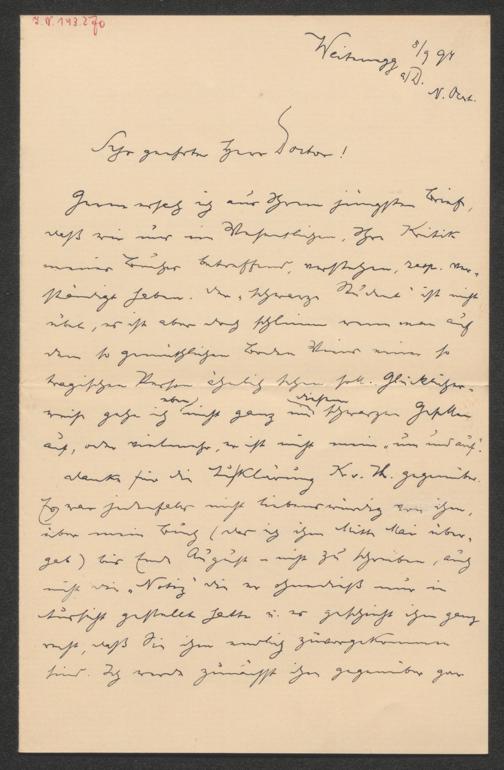 I.N. 143.270
Weitenegg 8/9 94
a/D.
N. Oest.
Sehr geehrter Herr Doctor!
Gerne ersah ich aus Ihrem jüngsten Brief,
daß wir uns im Wesentlichen, Ihre Kritik
meiner Bücher betreffend, verstehen, resp. ver-
ständigt haben. Der „schwarze Student" ist nicht
übel, es ist aber doch schlimm wenn man auf
dem so gemüthlichen Boden Wiens einer so
tragischen Person ähnlich sehen soll. Glücklicher-
weise gehe ich aber nicht ganz in diesem schwarzen Gesellen
auf, oder vielmehr, er ist nicht mein „um und auf".
Danke für die Aufklärung K. v. Th. gegenüber.
Es war jedenfalls nicht liebenswürdig von ihm,
über mein Buch (das ich ihm Mitte Mai über-
gab) bis Ende August – nicht zu schreiben, auch
nicht die „Notiz" die er ohnedieß nur in
Aussicht gestellt hatte u. es geschieht ihm ganz
recht, daß Sie ihm endlich zuvorgekommen
sind. Ich werde zunächst ihm gegenüber gar